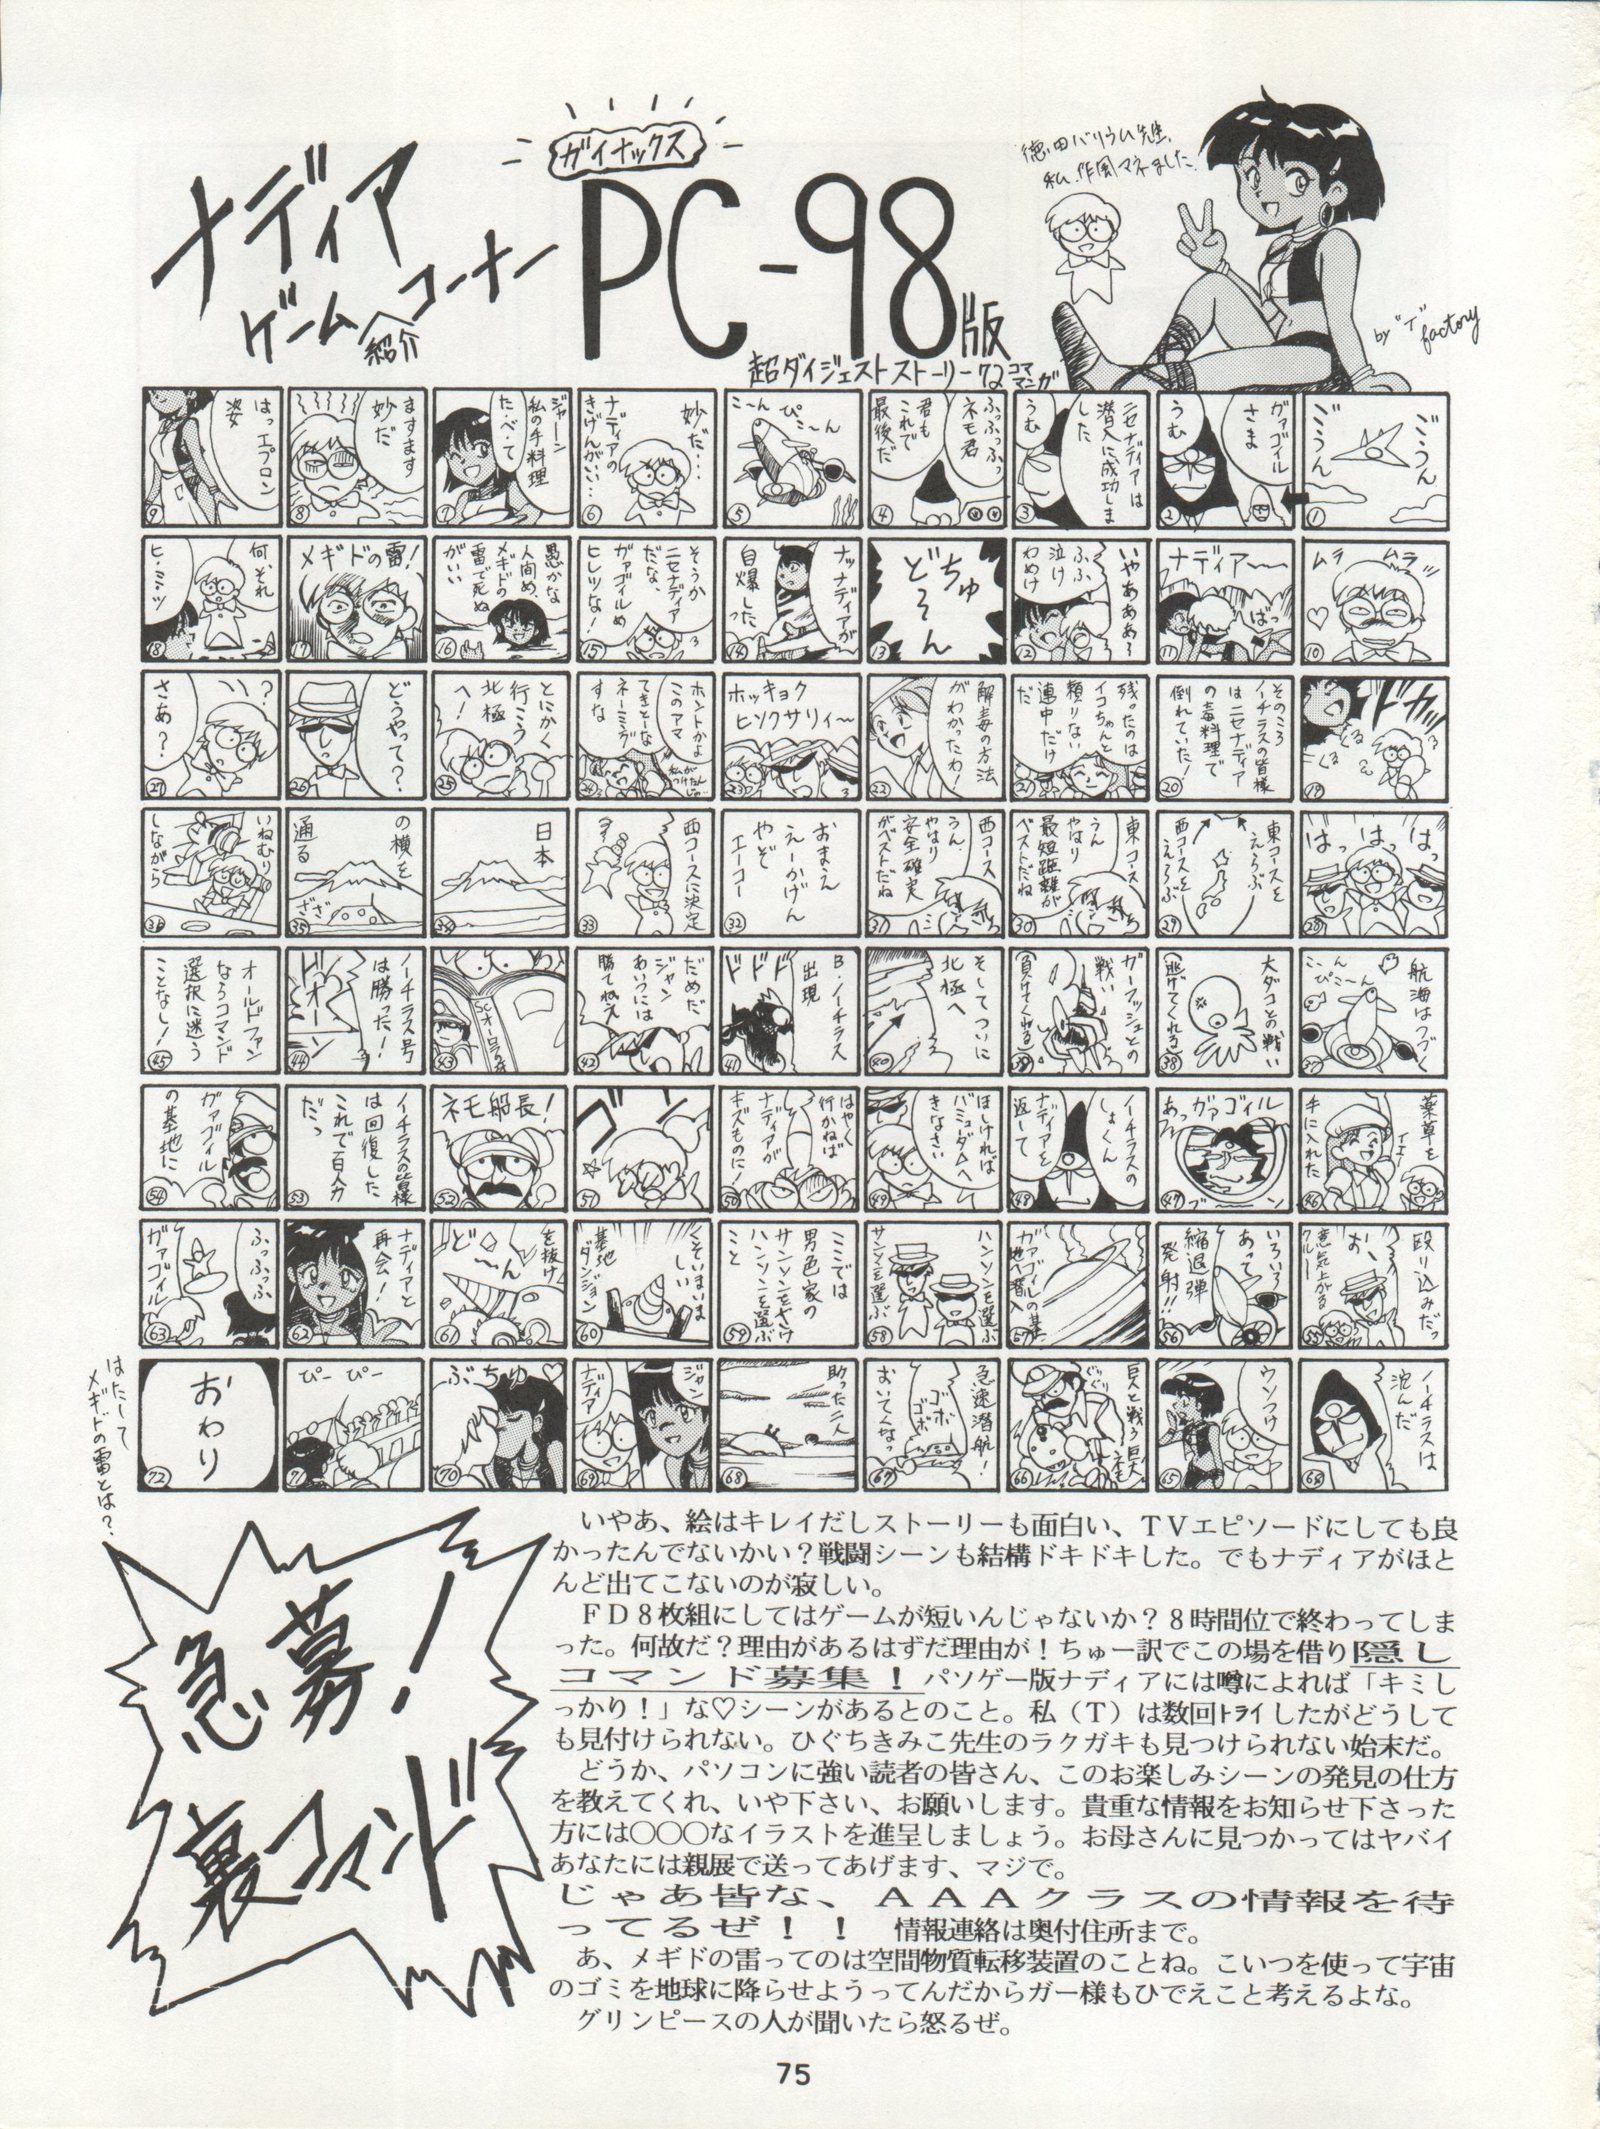 ナディア
ゲーム紹介コーナー
ガイナックス
PC-98版
超ダイジェストストーリー72コママンガ
徳田バリウム先生、
私、作風マネました。
by "T" factory
ごうん
ごうん
①
ガァゴイル
さま
うむ
②
ニセナディアは
潜入に成功しま
した
うむ
③
ふっふっふっ
ネモ君
君も
これで
最後だ
④
こーん
ぴこーん
⑤
妙だ…
ナディアの
きげんがいい…
⑥
ジャーン
私の手料理
た・べ・て
⑦
ますます
妙だ
⑧
はっエプロン
姿
⑨
ムラ
ムラッ
⑩
ナディア〜〜
ばっ
⑪
いやあああ〜
ふふ、
泣け
わめけ
⑫
ちゅ
ど〜ん
⑬
ナッナディアが
自爆したっ
⑭
そうか
ニセナディア
だな、
ガァゴイルめ
ヒレツな!
⑮
愚かな
人間め、
メギドの
雷で死ぬ
がいい
⑯
メギドの雷!
⑰
何、それ
ヒ・ミ・ツ
⑱
ドカッ
くる
くる
⑲
そのころ
ノーチラスの皆様
はニセナディア
の毒料理で
倒れていた!
⑳
残ったのは
イコちゃんと
頼りない
連中だけ
だ
㉑
解毒の方法
がわかったわ!
㉒
ホッキョク
ヒソクサリィ〜
㉓
ホントかよ
このアマ
てきとーな
ネーミング
すな
㉔
とにかく
行こう
北極
へ!
㉕
どうやって?
㉖
?
さあ?
㉗
はっ
はっ
はっ
㉘
東コースを
えらぶ
西コースを
えらぶ
㉙
東コース
うん
やはり
最短距離が
ベストだね
㉚
西コース
うん、
やはり
安全確実
がベストだね
㉛
おまえ
えーかげん
やぞ
エーコー
㉜
西コースに決定
㉝
日本
㉞
の横を
通る
ざざ
㉟
いねむり
しながら
㊱
航海はつづく
こーん
ぴこーん
㊲
大ダコとの戦い
(逃げてくれる)
㊳
ガーフィッシュとの
戦い
(負けてくれる)
㊴
そしてついに
北極へ
㊵
B・ノーチラス
出現
ドドド
㊶
だめだ
ジャン
あいつには
勝てねえ
㊷
㊸
ノーチラス号
は勝った!
ドォーン
㊹
オールドファン
ならコマンド
選択に迷う
ことなし!
㊺
薬草を
手に入れた
㊻
あっガァゴイル
ブーン
㊼
ノーチラスの
しょくん
ナディアを
返して
㊽
ほしければ
バミューダへ
きなさい
㊾
はやく
行かねば
ナディアが
キズものに!
㊿
51
ネモ船長!
52
ノーチラスの皆様
は回復した
これで百人力
だっ
53
ガァゴイル
の基地に
54
殴り込みだっ
お、
意気上がる
クルー
55
いろいろ
あって
縮退弾
発射!!
56
ガァゴイルの基
地へ潜入
57
ハンソンを選ぶ
サンソンを選ぶ
58
ここでは
男色家の
サンソンをさけ
ハンソンを選ぶ
こと
59
くそいまいま
しい
基地
ダンジョン
60
を抜け
ど〜ん
61
ナディアと
再会!
62
ふっふっふ
ガァゴイル
63
ノーチラスは
沈んだ
64
ウソつけ
65
巨人と戦う巨大
ネモ
66
急速潜航!
ゴボ
ゴボ
おいてくなっ
67
助った二人
68
ジャン
ナディア
69
ぶちゅ♡
70
ぴー
ぴー
71
おわり
72
はたして
メギドの雷とは?
急募!
裏コマンド
いやあ、絵はキレイだしストーリーも面白い、TVエピソードにしても良
かったんでないかい?戦闘シーンも結構ドキドキした。でもナディアがほと
んど出てこないのが寂しい。
FD8枚組にしてはゲームが短いんじゃないか?8時間位で終わってしま
った。何故だ?理由があるはずだ理由が!ちゅー訳でこの場を借り隠し
コマンド募集!パソゲー版ナディアには噂によれば「キミし
っかり!」な♡シーンがあるとのこと。私(T)は数回トライしたがどうして
も見付けられない。ひぐちきみこ先生のラクガキも見つけられない始末だ。
どうか、パソコンに強い読者の皆さん、このお楽しみシーンの発見の仕方
を教えてくれ、いや下さい、お願いします。貴重な情報をお知らせ下さった
方には○○○なイラストを進呈しましょう。お母さんに見つかってはヤバイ
あなたには親展で送ってあげます、マジで。
じゃあ皆な、AAAクラスの情報を待
ってるぜ!! 情報連絡は奥付住所まで。
あ、メギドの雷ってのは空間物質転移装置のことね。こいつを使って宇宙
のゴミを地球に降らせようってんだからガー様もひでえこと考えるよな。
グリンピースの人が聞いたら怒るぜ。
75